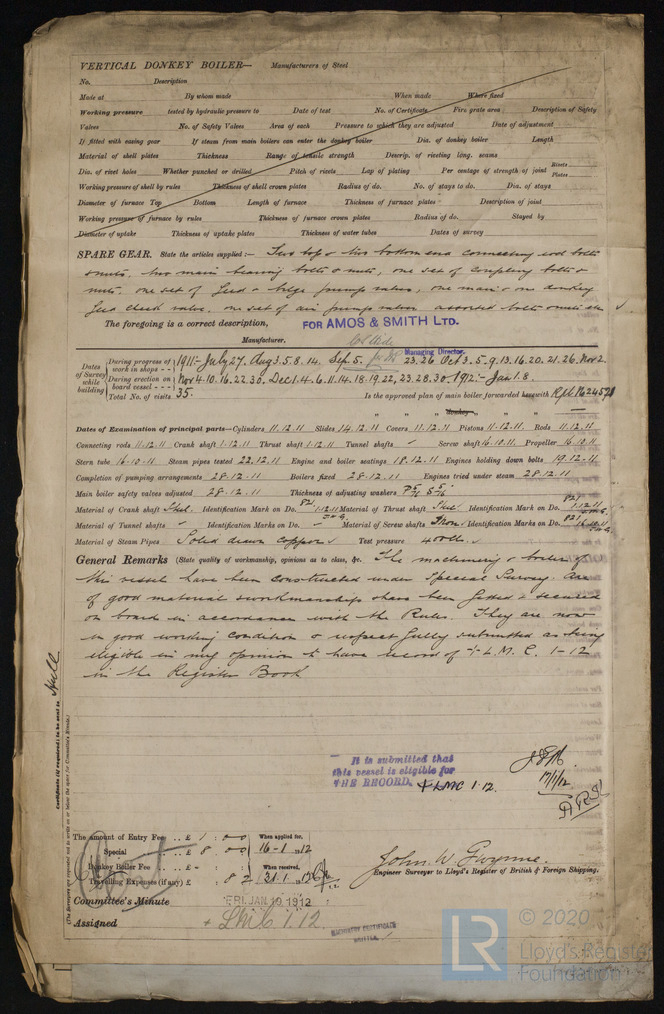 VERTICAL DONKEY BOILER— Manufacturers of Steel
No. Description
Made at By whom made When made Where fixed
Working pressure tested by hydraulic pressure to Date of test No. of Certificate Fire grate area Description of Safety
Valves No. of Safety Valves Area of each Pressure to which they are adjusted Date of adjustment
If fitted with easing gear If steam from main boilers can enter the donkey boiler Dia. of donkey boiler Length
Material of shell plates Thickness Range of tensile strength Descrip. of riveting long. seams
Dia. of rivet holes Whether punched or drilled Pitch of rivets Lap of plating Per centage of strength of joint Rivets Plates
Working pressure of shell by rules Thickness of shell crown plates Radius of do. No. of stays to do. Dia. of stays
Diameter of furnace Top Bottom Length of furnace Thickness of furnace plates Description of joint
Working pressure of furnace by rules Thickness of furnace crown plates Radius of do. Stayed by
Diameter of uptake Thickness of uptake plates Thickness of water tubes Dates of survey
SPARE GEAR. State the articles supplied:— Two top & two bottom end connecting rod bolts
& nuts, two main bearing bolts & nuts, one set of coupling bolts &
nuts, one set of feed & bilge pump valves, one main & one donkey
feed check valve, one set of air pump valves assorted bolts & nuts etc
The foregoing is a correct description, FOR AMOS & SMITH LTD.
Manufacturer. Managing Director.
Dates of Survey while building
During progress of work in shops - - 1911:- July 27. Aug 3. 5. 8. 14. Sep. 5. 23. 26. Oct 3. 5. 9. 13. 16. 20. 21. 26. Nov 2.
During erection on board vessel - - - Nov 4. 10. 16. 22. 30. Dec 1. 4. 6. 11. 14. 18. 19. 22, 23. 28. 30. 1912:- Jan 1. 8.
Total No. of visits 35. Is the approved plan of main boiler forwarded herewith Rpt. No 24571
" " " donkey " " "
Dates of Examination of principal parts—Cylinders 11.12.11 Slides 14.12.11 Covers 11.12.11 Pistons 11.12.11. Rods 11.12.11
Connecting rods 11.12.11 Crank shaft 1.12.11 Thrust shaft 1.12.11 Tunnel shafts Screw shaft 16.10.11 Propeller 16.10.11
Stern tube 16.10.11 Steam pipes tested 22.12.11 Engine and boiler seatings 18.12.11 Engines holding down bolts 19.12.11
Completion of pumping arrangements 28.12.11 Boilers fixed 28.12.11 Engines tried under steam 28.12.11
Main boiler safety valves adjusted 28.12.11 Thickness of adjusting washers P 5/16 S 5/16
Material of Crank shaft Steel Identification Mark on Do. 821 1.12.11 J.W.G. Material of Thrust shaft Steel Identification Mark on Do. 821 1.12.11 J.W.G.
Material of Tunnel shafts Identification Marks on Do. Material of Screw shafts Iron Identification Marks on Do. 821 16.10.11 J.W.G.
Material of Steam Pipes Solid drawn copper Test pressure 400 lbs.
General Remarks (State quality of workmanship, opinions as to class, &c. The machinery & boiler of
this vessel have been constructed under Special Survey. Are
of good material & workmanship & have been fitted & secured
on board in accordance with the Rules. They are now
in good working condition & respectfully submitted as being
eligible in my opinion to have record of + L. M. C. 1-12
in the Register Book
Certificate (if required) to be sent to Hull
(The Surveyors are requested not to write on or below the space for Committee's Minute.)
It is submitted that
this vessel is eligible for
THE RECORD. + LMC 1.12.
17/1/12
The amount of Entry Fee .. £ 1 : 00 When applied for,
Special .. £ 8 : 00 16-1-1912
Donkey Boiler Fee .. £ - When received,
Travelling Expenses (if any) £ : 8 2 31.1.1912
John. W. Gwynne.
Engineer Surveyor to Lloyd's Register of British & Foreign Shipping.
Committee's Minute FRI. JAN. 19. 1912
Assigned + LMC 1.12.
MACHINERY CERTIFICATE
WRITTEN.
LR
© 2020
Lloyd's Register
Foundation